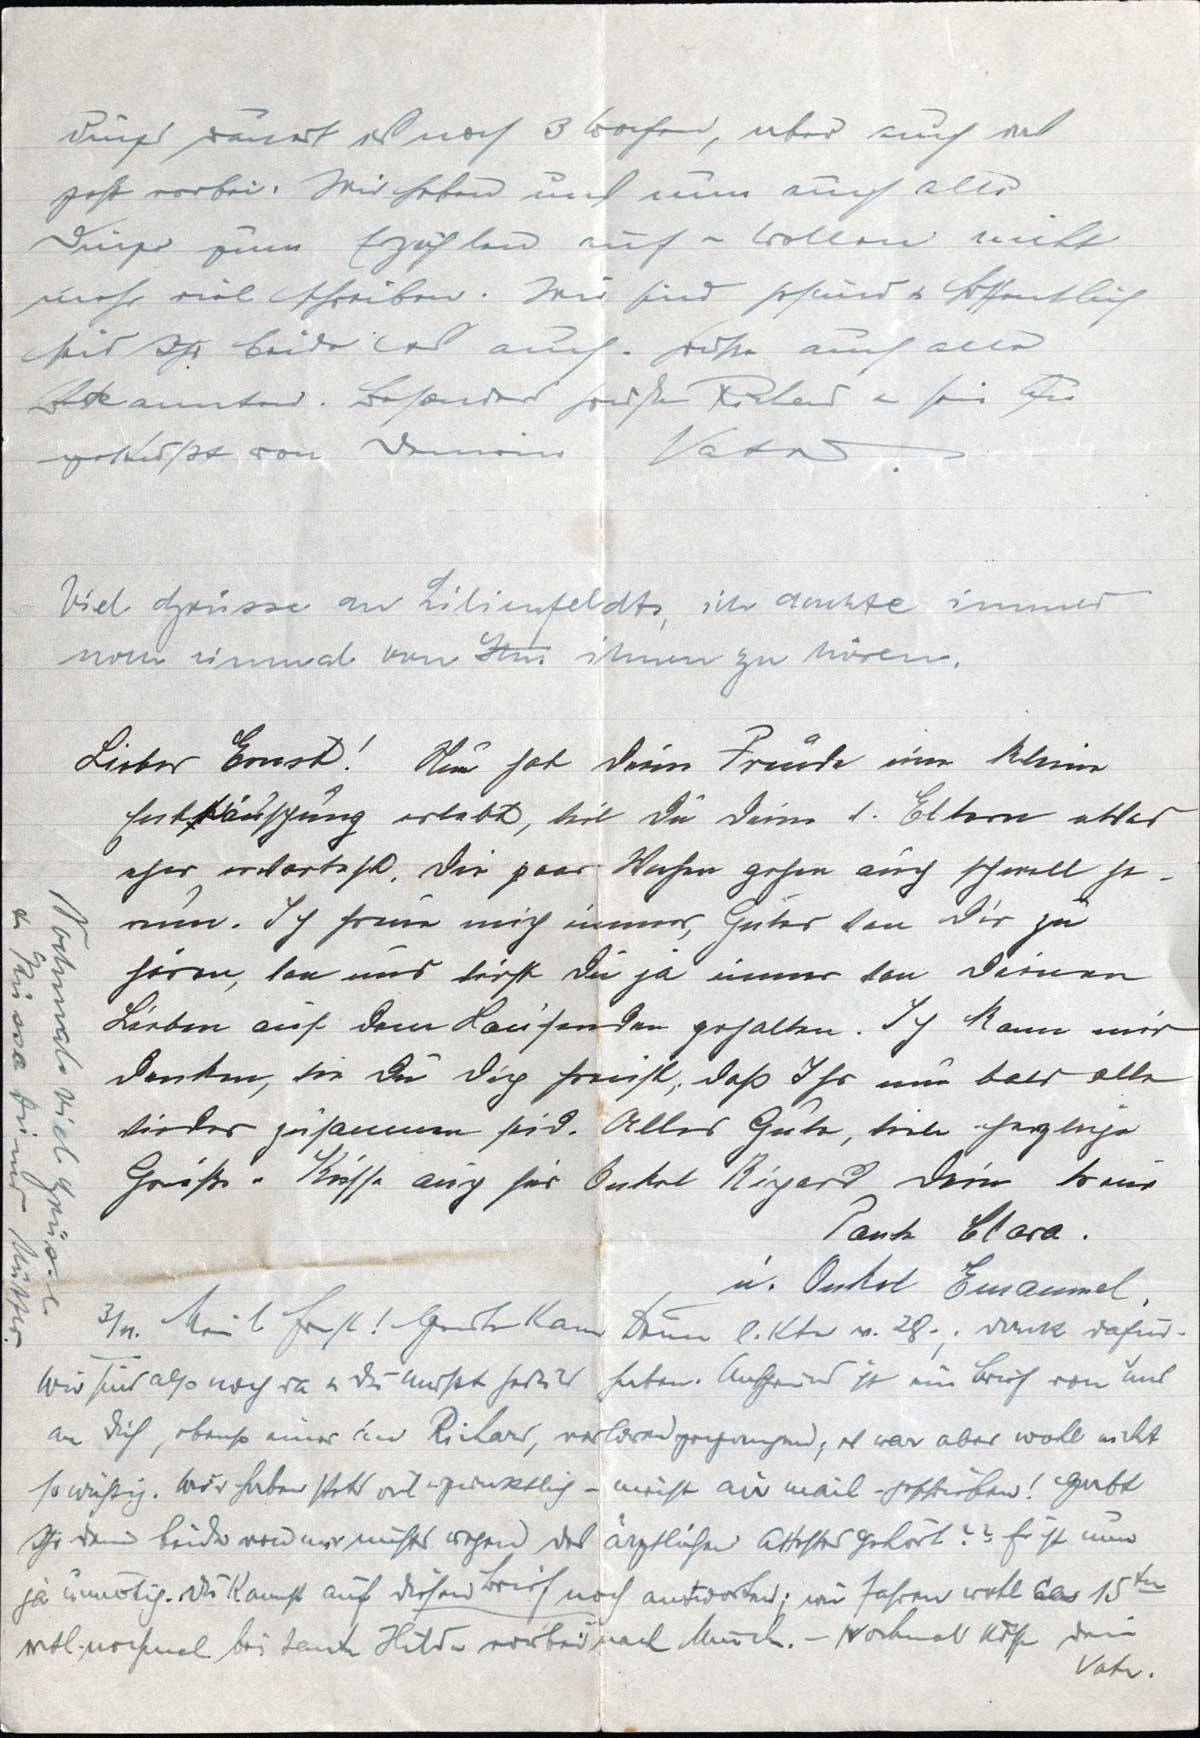 dauert es noch 3 Wochen, aber auch das
geht vorbei. Wir heben uns nun auch alle
Dinge zum Erzählen auf u. wollen nicht
mehr viel schreiben. Wir sind gesund u. hoffentlich
seid Ihr beide es auch. Grüße auch alle
Bekannten. Besonders grüße Richard u. sei Du
geküsst von Deinem Vater.
Viel Grüsse an Lilienfeldts, ich dachte immer
noch einmal von Ihn ihnen zu hören.
Lieber Ernst! Nun hat Deine Freude eine kleine
Enttäuschung erlebt, weil Du Deine l. Eltern etwas
eher erwartest. Die paar Wochen gehen auch schnell he-
rum. Ich freue mich immer, Gutes von Dir zu
hören, von uns wirst Du ja immer von Deinen
Lieben auf dem Laufenden gehalten. Ich kann mir
denken, wie Du Dich freust, daß Ihr nun bald alle
wieder zusammen seid. Alles Gute, viele herzliche
Grüße u. Küsse auch für Onkel Richard Deine treue
Tante Clara.
u. Onkel Emanuel.
Nochmals viel Grüsse
u. Küsse Deine Mutter.
3/11. Mein l. Ernst! Gestern kam Deine l. Kte v. 28., Dank dafür.
Wir sind also noch da u. Du musst Geduld haben. Anscheinend ist ein Brief von uns
an Dich, ebenso einer an Richard, verloren gegangen, es war aber wohl nicht
so wichtig. Wir haben stets viel u. pünktlich - meist air mail - geschrieben! Habt
Ihr denn beide von mir nichts wegen des ärztlichen Attestes gehört?? Es ist nun
ja unnötig. Du kannst auf diesen Brief noch antworten; wir fahren wohl am 15ten
evtl. nochmal bei Tante Hilde vorbei nach Münch. - Nochmals Küsse Dein
Vater.